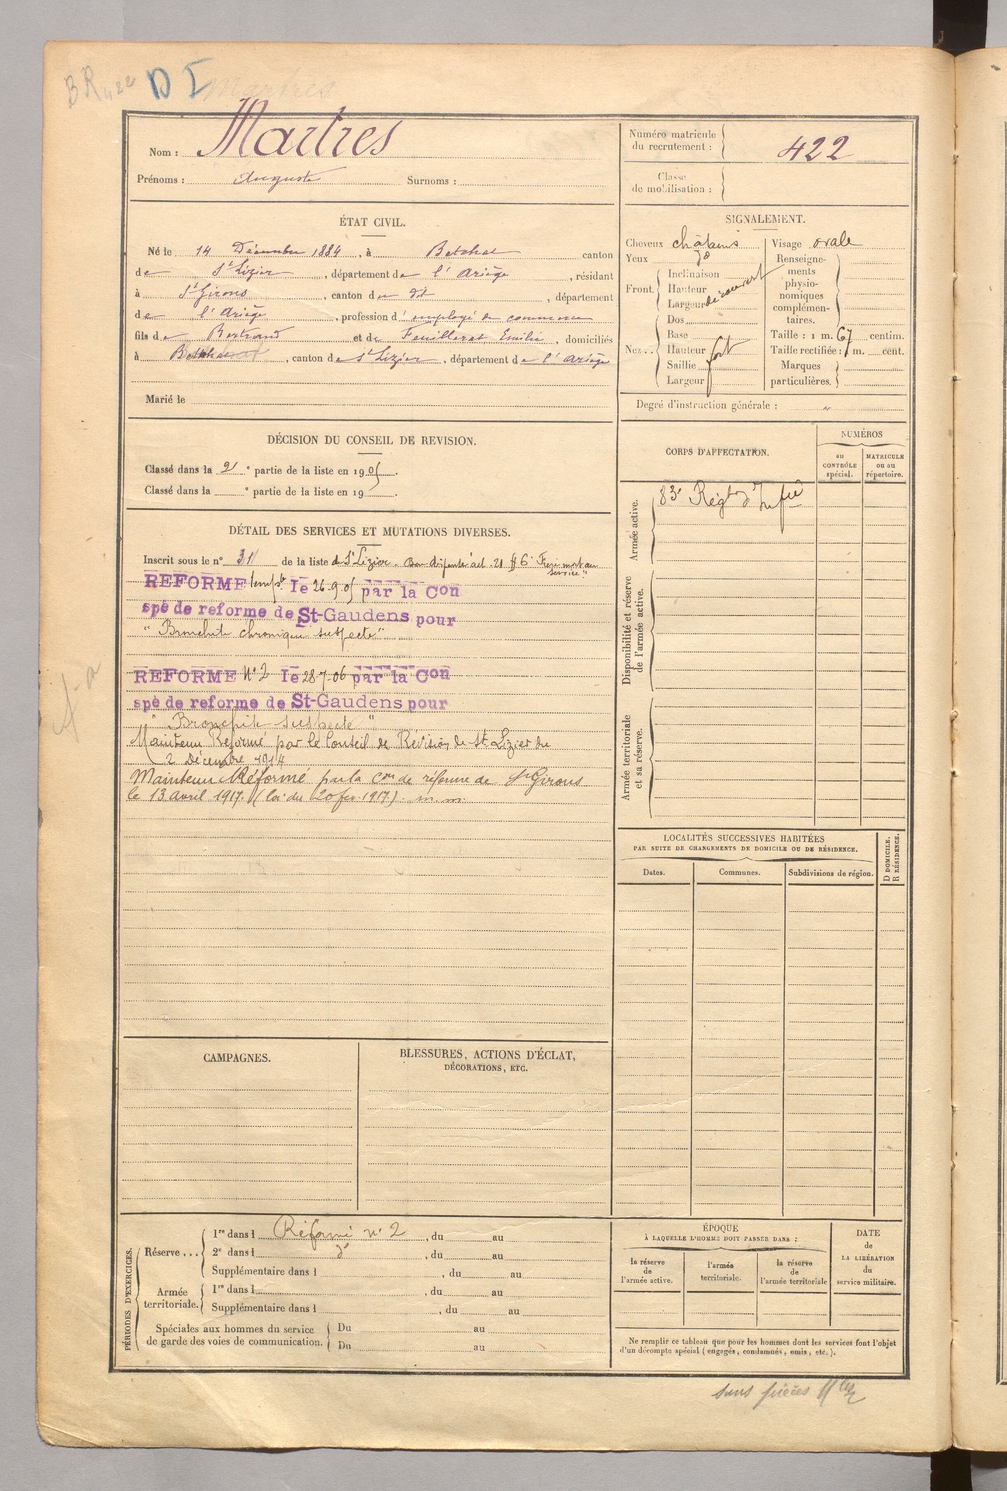 BR 422 D I Martres
Nom : Martres
Prénoms : Auguste Surnoms :
Numéro matricule du recrutement : 422
Classe de mobilisation :
ÉTAT CIVIL.
Né le 14 Décembre 1884, à Betchat canton
de St Lizier, département de l'Ariège, résidant
à St Girons, canton du dit, département
de l'Ariège, profession d'employé de commerce
fils de Bertrand et de Feuillerat Emilie, domiciliés
à Betchat, canton de St Lizier, département de l'Ariège
Marié le
SIGNALEMENT.
Cheveux châtains
Yeux do
Front. Inclinaison
Hauteur
Largeur découvert
Nez.. Dos
Base
Hauteur fort
Saillie
Largeur
Visage ovale
Renseignements physionomiques complémentaires.
Taille : 1 m. 67 centim.
Taille rectifiée : 1 m. cent.
Marques particulières.
Degré d'instruction générale : "
DÉCISION DU CONSEIL DE REVISION.
Classé dans la 2 e partie de la liste en 1905.
Classé dans la e partie de la liste en 19 .
DÉTAIL DES SERVICES ET MUTATIONS DIVERSES.
Inscrit sous le n° 31 de la liste de St Lizier. Bon dispensé art. 21 § 6 "Frère mort au
service"
REFORME temp.re le 26.9.05 par la Con
spé de reforme de St-Gaudens pour
"Bronchite chronique suspecte"
REFORME N° 2 le 28-7.06 par la Con
spé de reforme de St-Gaudens pour
"Bronchite suspecte"
Maintenu Réformé par le Conseil de Révision de St Lizier du
2 décembre 1914
Maintenu Réformé par la Con de réforme de St Girons
le 13 avril 1917. (loi du 20 fer 1917) m.m.
CORPS D'AFFECTATION.
NUMÉROS
AU CONTRÔLE spécial.
MATRICULE ou au répertoire.
Armée active.
83e Régt d'Infie
Disponibilité et réserve de l'armée active.
Armée territoriale et sa réserve.
LOCALITÉS SUCCESSIVES HABITÉES
PAR SUITE DE CHANGEMENTS DE DOMICILE OU DE RÉSIDENCE.
D DOMICILE.
R RÉSIDENCE.
Dates. Communes. Subdivisions de région.
CAMPAGNES.
BLESSURES, ACTIONS D'ÉCLAT,
DÉCORATIONS, ETC.
PÉRIODES D'EXERCICES.
Réserve... 1re dans l Réformé n° 2, du au
2e dans l do, du au
Supplémentaire dans l , du au
Armée territoriale. 1re dans l , du au
Supplémentaire dans l , du au
Spéciales aux hommes du service
de garde des voies de communication. Du au
Du au
ÉPOQUE
À LAQUELLE L'HOMME DOIT PASSER DANS :
la réserve de l'armée active.
l'armée territoriale.
la réserve de l'armée territoriale
DATE
de
LA LIBÉRATION
du
service militaire.
Ne remplir ce tableau que pour les hommes dont les services font l'objet
d'un décompte spécial (engagés, condamnés, omis, etc.).
sans pièces